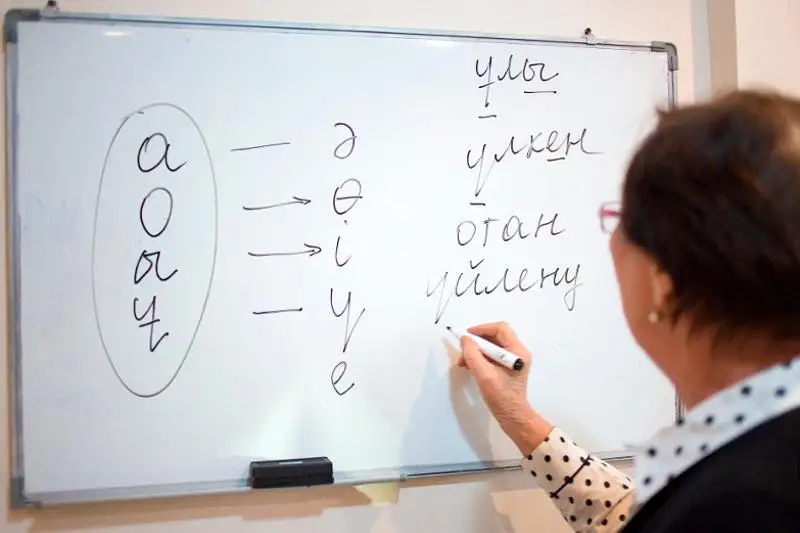 а — ә
о → ө
ы → і
ұ — ү
е
ұлы
үлкен
отан
үйлену